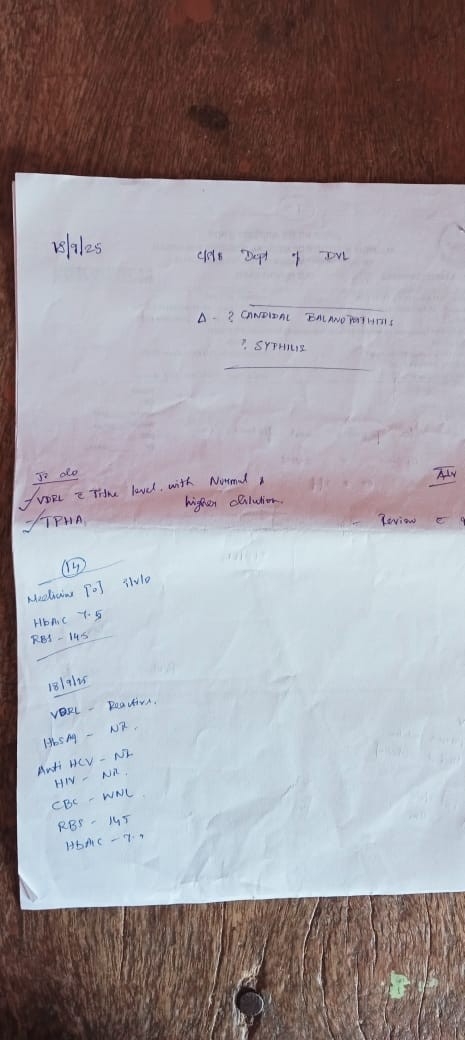 18/9/25
C/S/B Dept of DVL
Δ - ? CANDIDAL BALANOPOSTHITIS
? SYPHILIS
To do
VDRL c Titre level. with Normal &
higher dilution.
TPHA
Adv
- Review c
(14)
Medicine [O] i/v/o
HbA1c 7.5
RBS - 145
18/9/25
VDRL - Reactive.
HbSAg - NR.
Anti HCV - NR
HIV - NR.
CBC - WNL.
RBS - 145
HbA1c - 7.